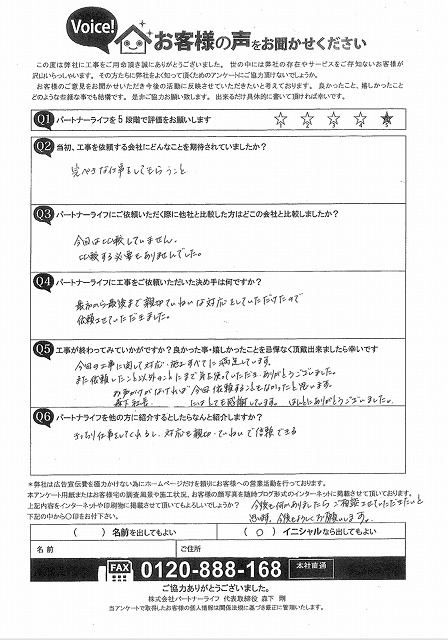 Voice!
お客様の声をお聞かせください
この度は弊社に工事をご用命頂き誠にありがとうございました。 世の中には弊社の存在やサービスをご存知ないお客様が
沢山いらっしゃいます。 その方たちに弊社をよく知って頂くためのアンケートにご協力頂けないでしょうか。
お客様のご意見をお聞かせいただき今後の活動に反映させていただきたいと考えております。 良かったこと、嬉しかったこと
どのような些細な事でも結構です。 是非ご協力お願い致します。 出来るだけ具体的に書いて頂ければ幸いです。
Q1 パートナーライフを5段階で評価をお願いします
Q2 当初、工事を依頼する会社にどんなことを期待されていましたか?
完ぺきな仕事をしてもらうこと
Q3 パートナーライフにご依頼いただく際に他社と比較した方はどこの会社と比較しましたか?
今回は比較していません。
比較する必要もありませんでした。
Q4 パートナーライフに工事をご依頼いただいた決め手は何ですか?
最初から最後まで親切ていねいな対応をしていただけたので
依頼させていただきました。
Q5 工事が終わってみていかがですか?良かった事・嬉しかったことを忌憚なく頂戴出来ましたら幸いです
今回の工事に関して対応・施工すべてに満足しています。
また依頼したこと以外のことにまで気を使っていただき、ありがとうございました。
お声がけがなければ今回依頼することもなかったと思います。
森下社長 には とても感謝しています。 ほんとにありがとうございました。
Q6 パートナーライフを他の方に紹介するとしたらなんと紹介しますか?
きっちり仕事をしてくれるし、対応も親切・ていねいで信頼できる
*弊社は広告宣伝費を極力かけない為にホームページだけを頼りにお客様への営業活動を行っております。
本アンケート用紙またはお客様宅の調査風景や施工状況、お客様の顔写真を随時ブログ形式のインターネットに掲載させて頂いております。
上記内容をインターネットや印刷物に掲載させて頂いてもよろしいでしょうか?
下記の中から〇印をお付下さい。
今後も何かありましたらご相談させていただきたいと
思います。今後もよろしくお願いします。
( ) 名前を出してもよい ( 〇 ) イニシャルなら出してもよい
名 前 ご住所
FAX 0120-888-168 本社直通
ご協力ありがとうございました。
株式会社パートナーライフ 代表取締役 森下 剛
当アンケートで取得したお客様の個人情報は関係法規に基づき厳正に管理いたします。